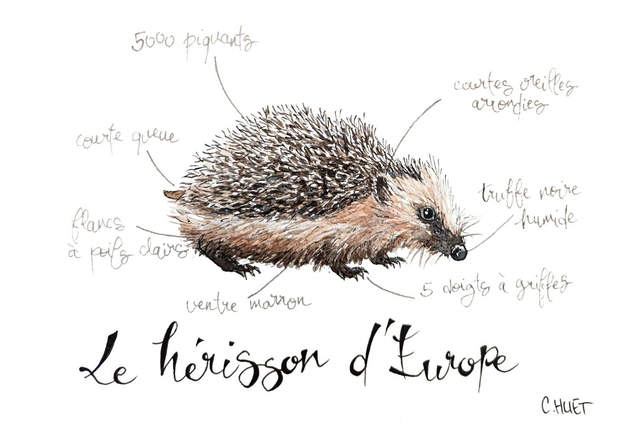 5000 piquants
courtes oreilles
arrondies
courte queue
truffe noire
humide
flancs
à poils clairs
5 doigts à griffes
ventre marron
Le hérisson d'Europe
C.HUET